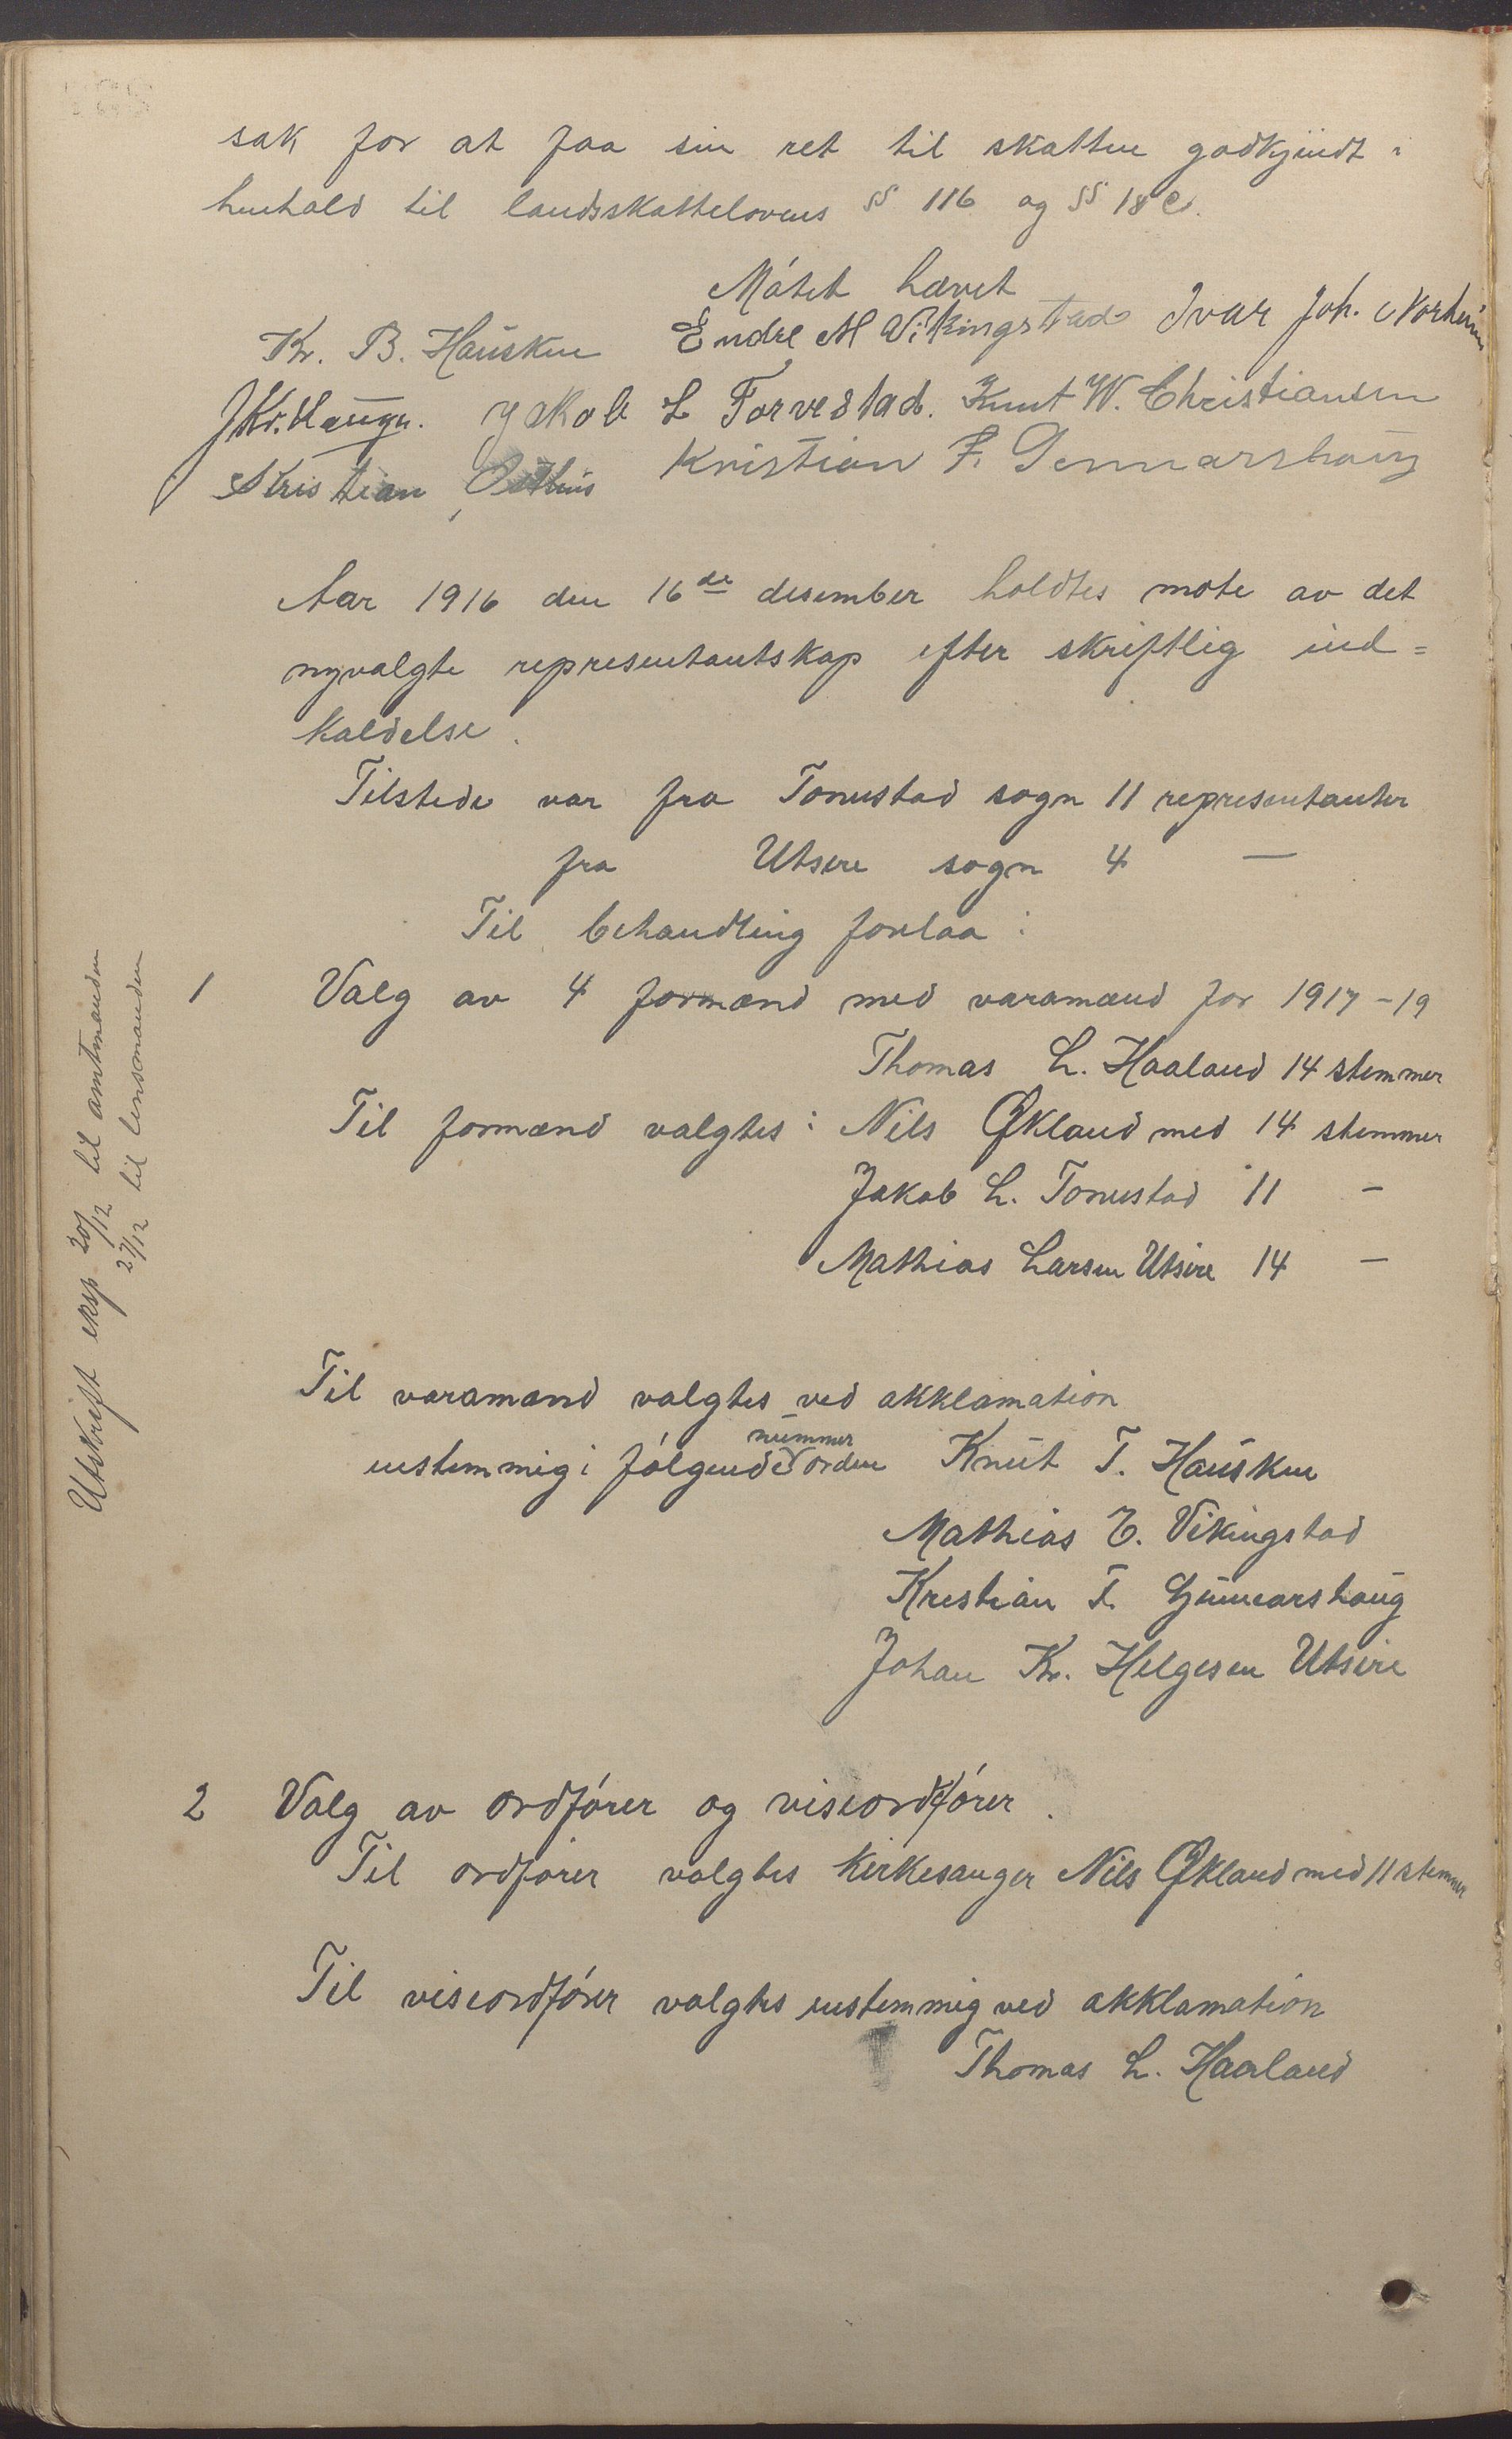 sak for at faa sin ret til skatten godkjendt i
henhold til landsskattelovens §§ 116 og §§ 18 c.
Møtet hævet
Kr. B. Hausken Endre M Vikingstad Ivar Joh. Norheim
J Kr. Haugen. Jakob L Torvestad. Knut W. Christiansen
Kristian Osthus Kristian F. Gunnarshaug
Aar 1916 den 16de desember holdtes møte av det
nyvalgte representantskap efter skriftlig ind=
kaldelse.
Tilstede var fra Torvestad sogn 11 representanter
fra Utsire sogn 4 —
Til behandling forelaa:
1 Valg av 4 formænd med varamænd for 1917-19
Thomas L. Haaland 14 stemmer
Til formænd valgtes: Nils Økland med 14 stemmer
Jakob L. Torvestad 11 -
Mathias Larsen Utsire 14 -
Til varamænd valgtes ved akklamation
nummer
enstemmig i følgende orden Knut T. Hausken
Mathias E. Vikingstad
Kristian F. Gunnarshaug
Johan Kr. Helgesen Utsire
2 Valg av ordfører og viseordfører.
Til ordfører valgtes kirkesanger Nils Økland med 11 stemmer
Til viseordfører valgtes enstemmig ved akklamation
Thomas L. Haaland
Utskrift eksp 20/12 til amtmanden
27/12 til lensmanden